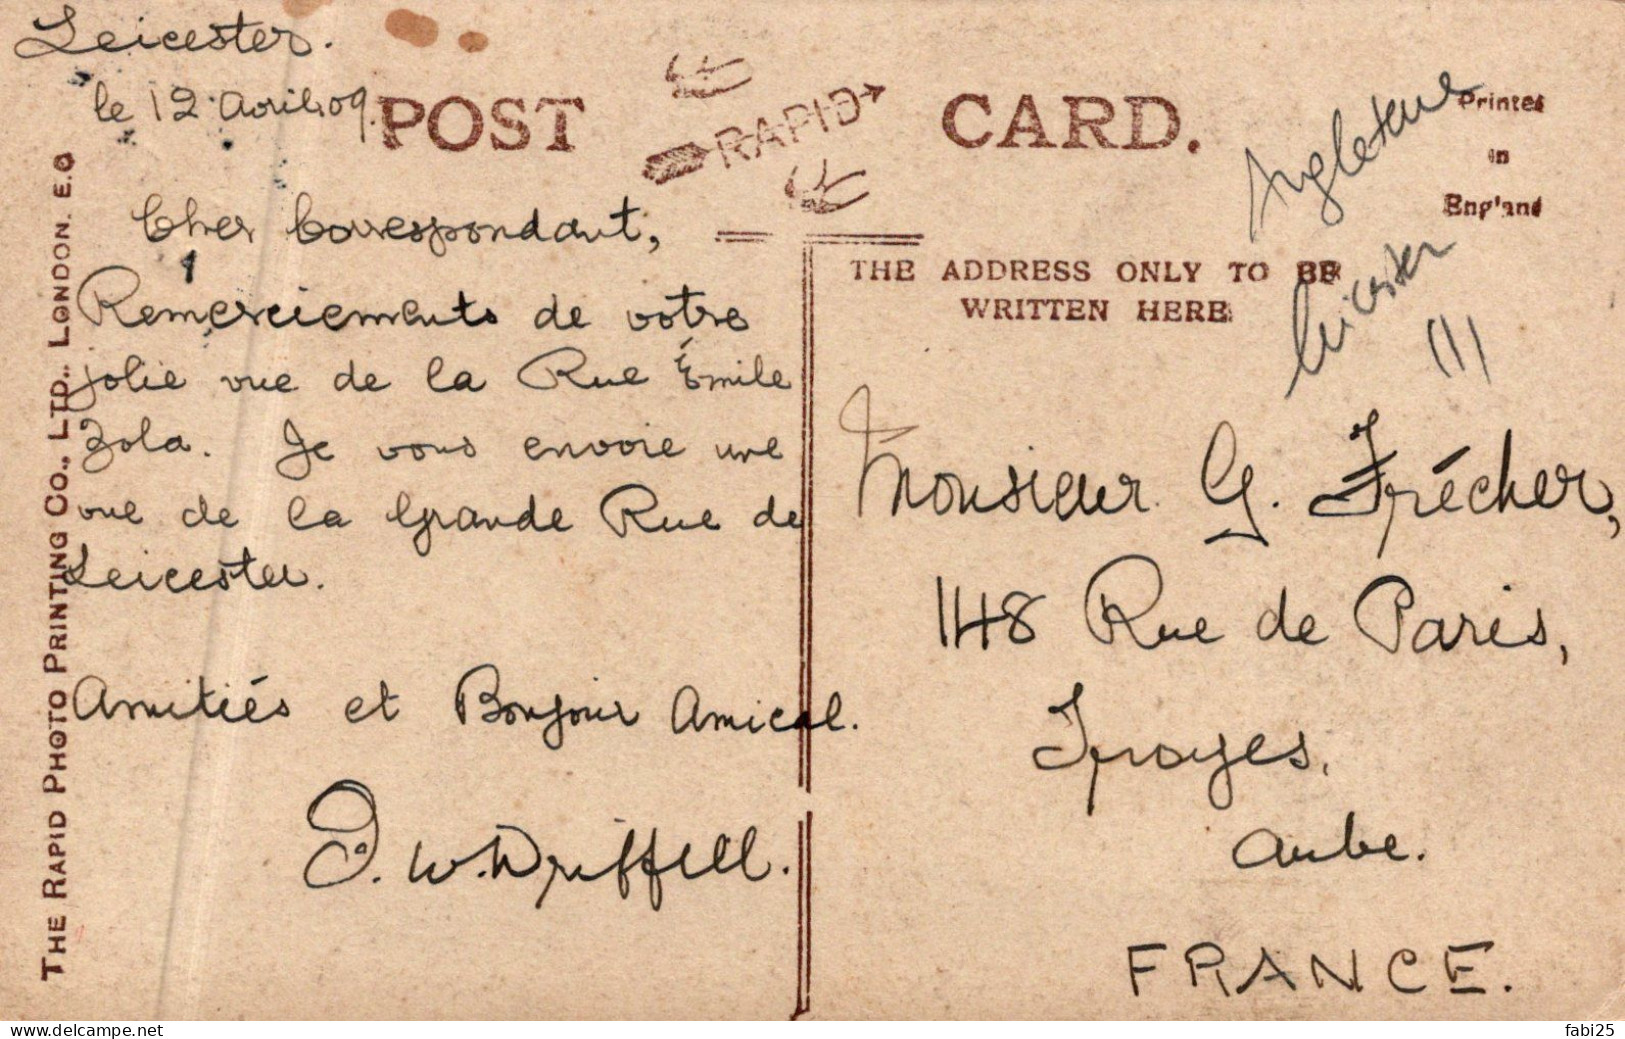 Leicester.
le 12 avril 09.
POST
RAPID
CARD.
Printed
in
England
Angleterre
Leicester
THE ADDRESS ONLY TO BE
WRITTEN HERE
Cher Correspondant,
Remerciements de votre
jolie vue de la Rue Émile
Zola. Je vous envoie une
vue de la Grande Rue de
Leicester.
Amitiés et Bonjour Amical.
W. Driffell.
Monsieur G. Frécher,
148 Rue de Paris,
Troyes.
Aube.
FRANCE.
THE RAPID PHOTO PRINTING CO., LTD., LONDON. E.C
www.delcampe.net
fabi25